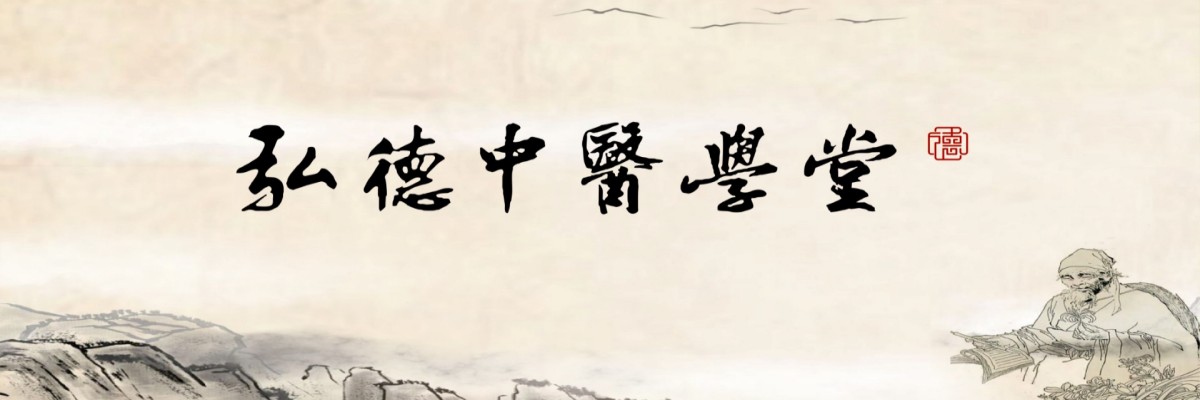 弘德中醫學堂
德